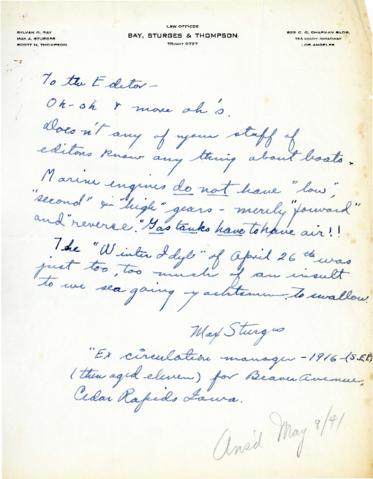 LAW OFFICES
BAY, STURGES & THOMPSON
TRINITY 0737
MAX A. STURGES
SCOTT H. THOMPSON
C. C. CHAPMAN BLDG.
LOS ANGELES
To the Editor—
Oh-oh & more oh's.
Doesn't any of your staff of
editors know any thing about boats.
Marine engines do not have "low",
"second" & "high" gears - merely "forward"
and "reverse." Gas tanks have to have air!!
The "Winter Idyl" of April 26th was
just too, too much of an insult
to we sea going yachtsmen to swallow.
Max Sturges
"Ex circulation manager - 1916 - (S.E.P.)
(then aged eleven) for Beaver Avenue,
Cedar Rapids Iowa.
Ans'd May 9/41